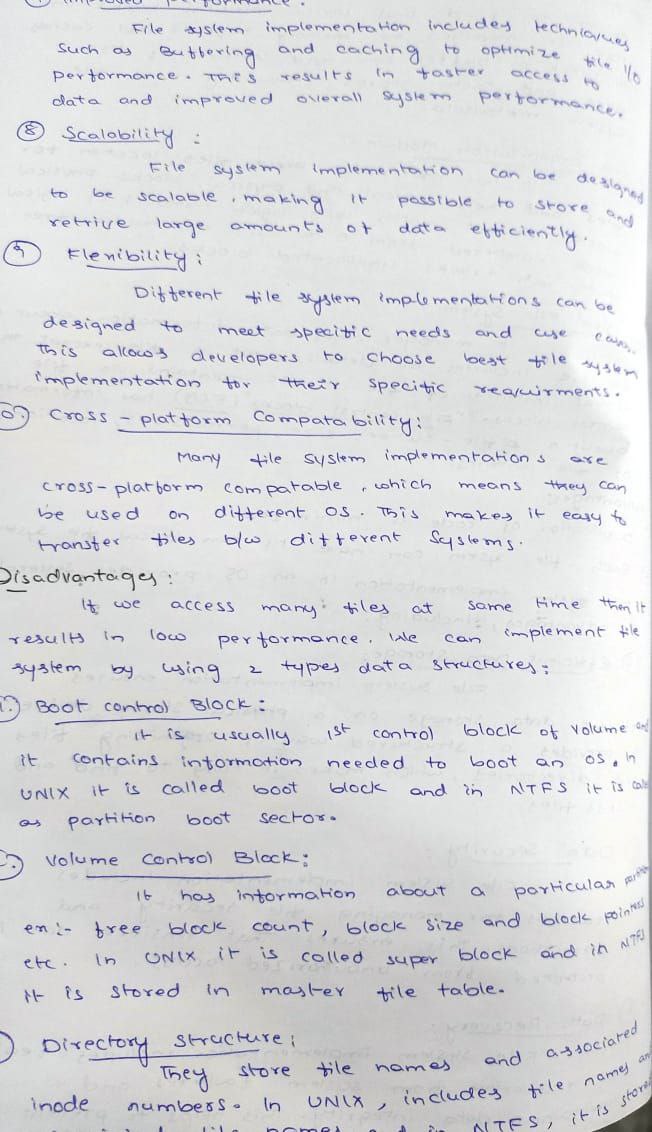 File system implementation includes techniques
such as Buffering and caching to optimize file I/o
performance. This results in faster access to
data and improved overall system performance.
⑧ Scalability :
File system implementation can be designed
to be scalable, making it possible to store and
retrive large amounts of data efficiently.
⑨ Flexibility :
Different file system implementations can be
designed to meet specific needs and use cases.
This allows developers to choose best file system
implementation for their specific requirments.
Cross - platform Compatability :
Many file system implementations are
cross-platform compatable, which means they can
be used on different OS. This makes it easy to
transfer files b/w different Systems.
Disadvantages :
If we access many files at same time then it
results in low performance. We can implement file
system by using 2 types data structures :
Boot control Block :
It is usually 1st control block of volume and
it contains information needed to boot an OS. In
UNIX it is called boot block and in NTFS it is
as partition boot sector.
Volume Control Block :
It has information about a particular
ex:- free block count, block size and block pointers
etc. In UNIX it is called super block and in NTFS
it is stored in master file table.
Directory structure :
They store file names and associated
inode numbers. In UNIX, includes file names and
NTFS, it is